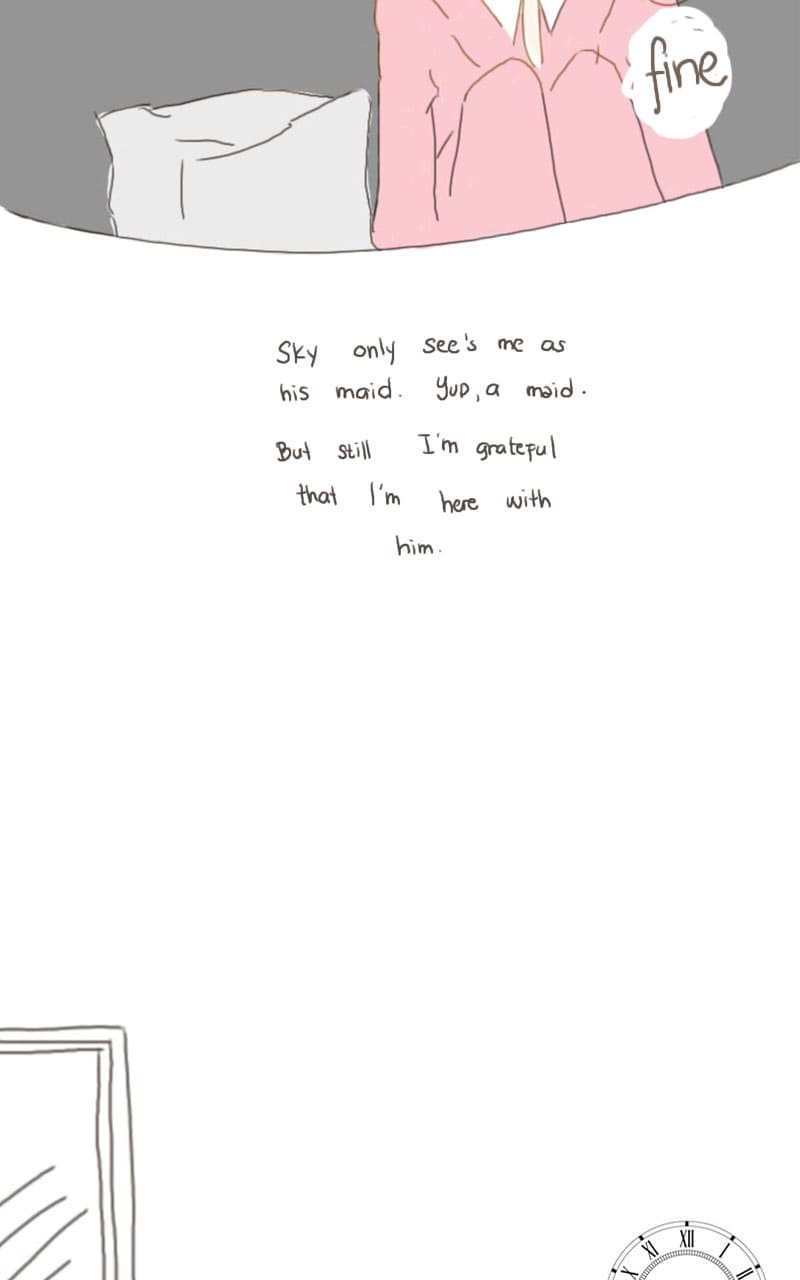 fine
Sky only see's me as
his maid. Yup, a maid.
But still I'm grateful
that I'm here with
him.
X XI XII I II